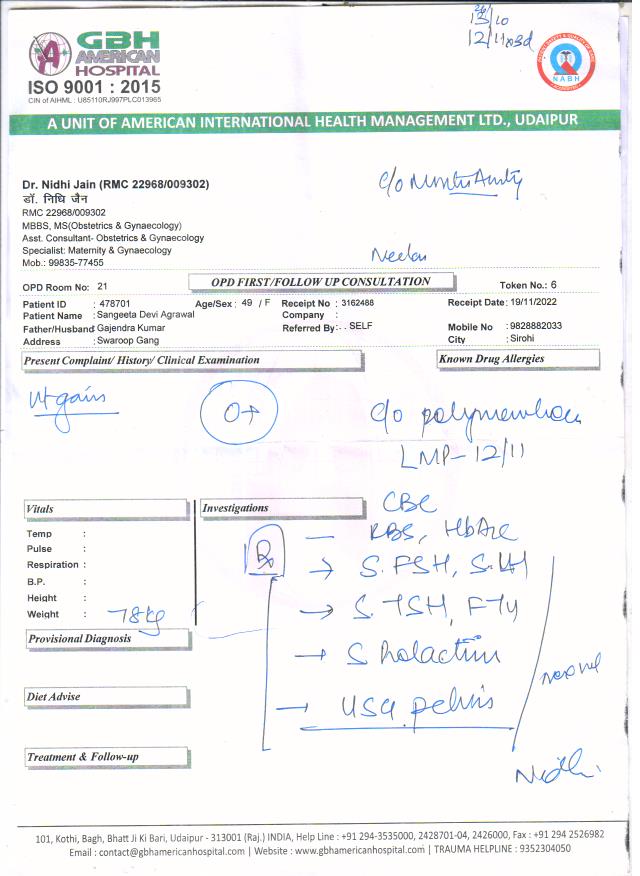 26
13/10
12/11 x3d
GBH
AMERICAN
HOSPITAL
ISO 9001 : 2015
CIN of AIHML : U85110RJ997PLC013965
NABH
A UNIT OF AMERICAN INTERNATIONAL HEALTH MANAGEMENT LTD., UDAIPUR
Dr. Nidhi Jain (RMC 22968/009302)
डॉ. निधि जैन
RMC 22968/009302
MBBS, MS(Obstetrics & Gynaecology)
Asst. Consultant- Obstetrics & Gynaecology
Specialist: Maternity & Gynaecology
Mob.: 99835-77455
c/o
OPD Room No: 21
OPD FIRST/FOLLOW UP CONSULTATION
Token No.: 6
Patient ID : 478701 Age/Sex : 49 / F Receipt No : 3162488 Receipt Date : 19/11/2022
Patient Name : Sangeeta Devi Agrawal Company :
Father/Husband Gajendra Kumar Referred By:- . SELF Mobile No : 9828882033
Address : Swaroop Gang City : Sirohi
Present Complaint/ History/ Clinical Examination
Known Drug Allergies
Wt gain
O+
c/o
LMP- 12/11
Vitals
Investigations
CBC
Temp :
RBS, HbA1c
Pulse :
Rx
Respiration :
→ S. FSH, S. LH
B.P. :
Height :
Weight : 78kg
→ S. TSH, FT4
Provisional Diagnosis
→ S Prolactin
Diet Advise
→ USG pelvis
Treatment & Follow-up
Nidhi
101, Kothi, Bagh, Bhatt Ji Ki Bari, Udaipur - 313001 (Raj.) INDIA, Help Line : +91 294-3535000, 2428701-04, 2426000, Fax : +91 294 2526982
Email : contact@gbhamericanhospital.com | Website : www.gbhamericanhospital.com | TRAUMA HELPLINE : 9352304050